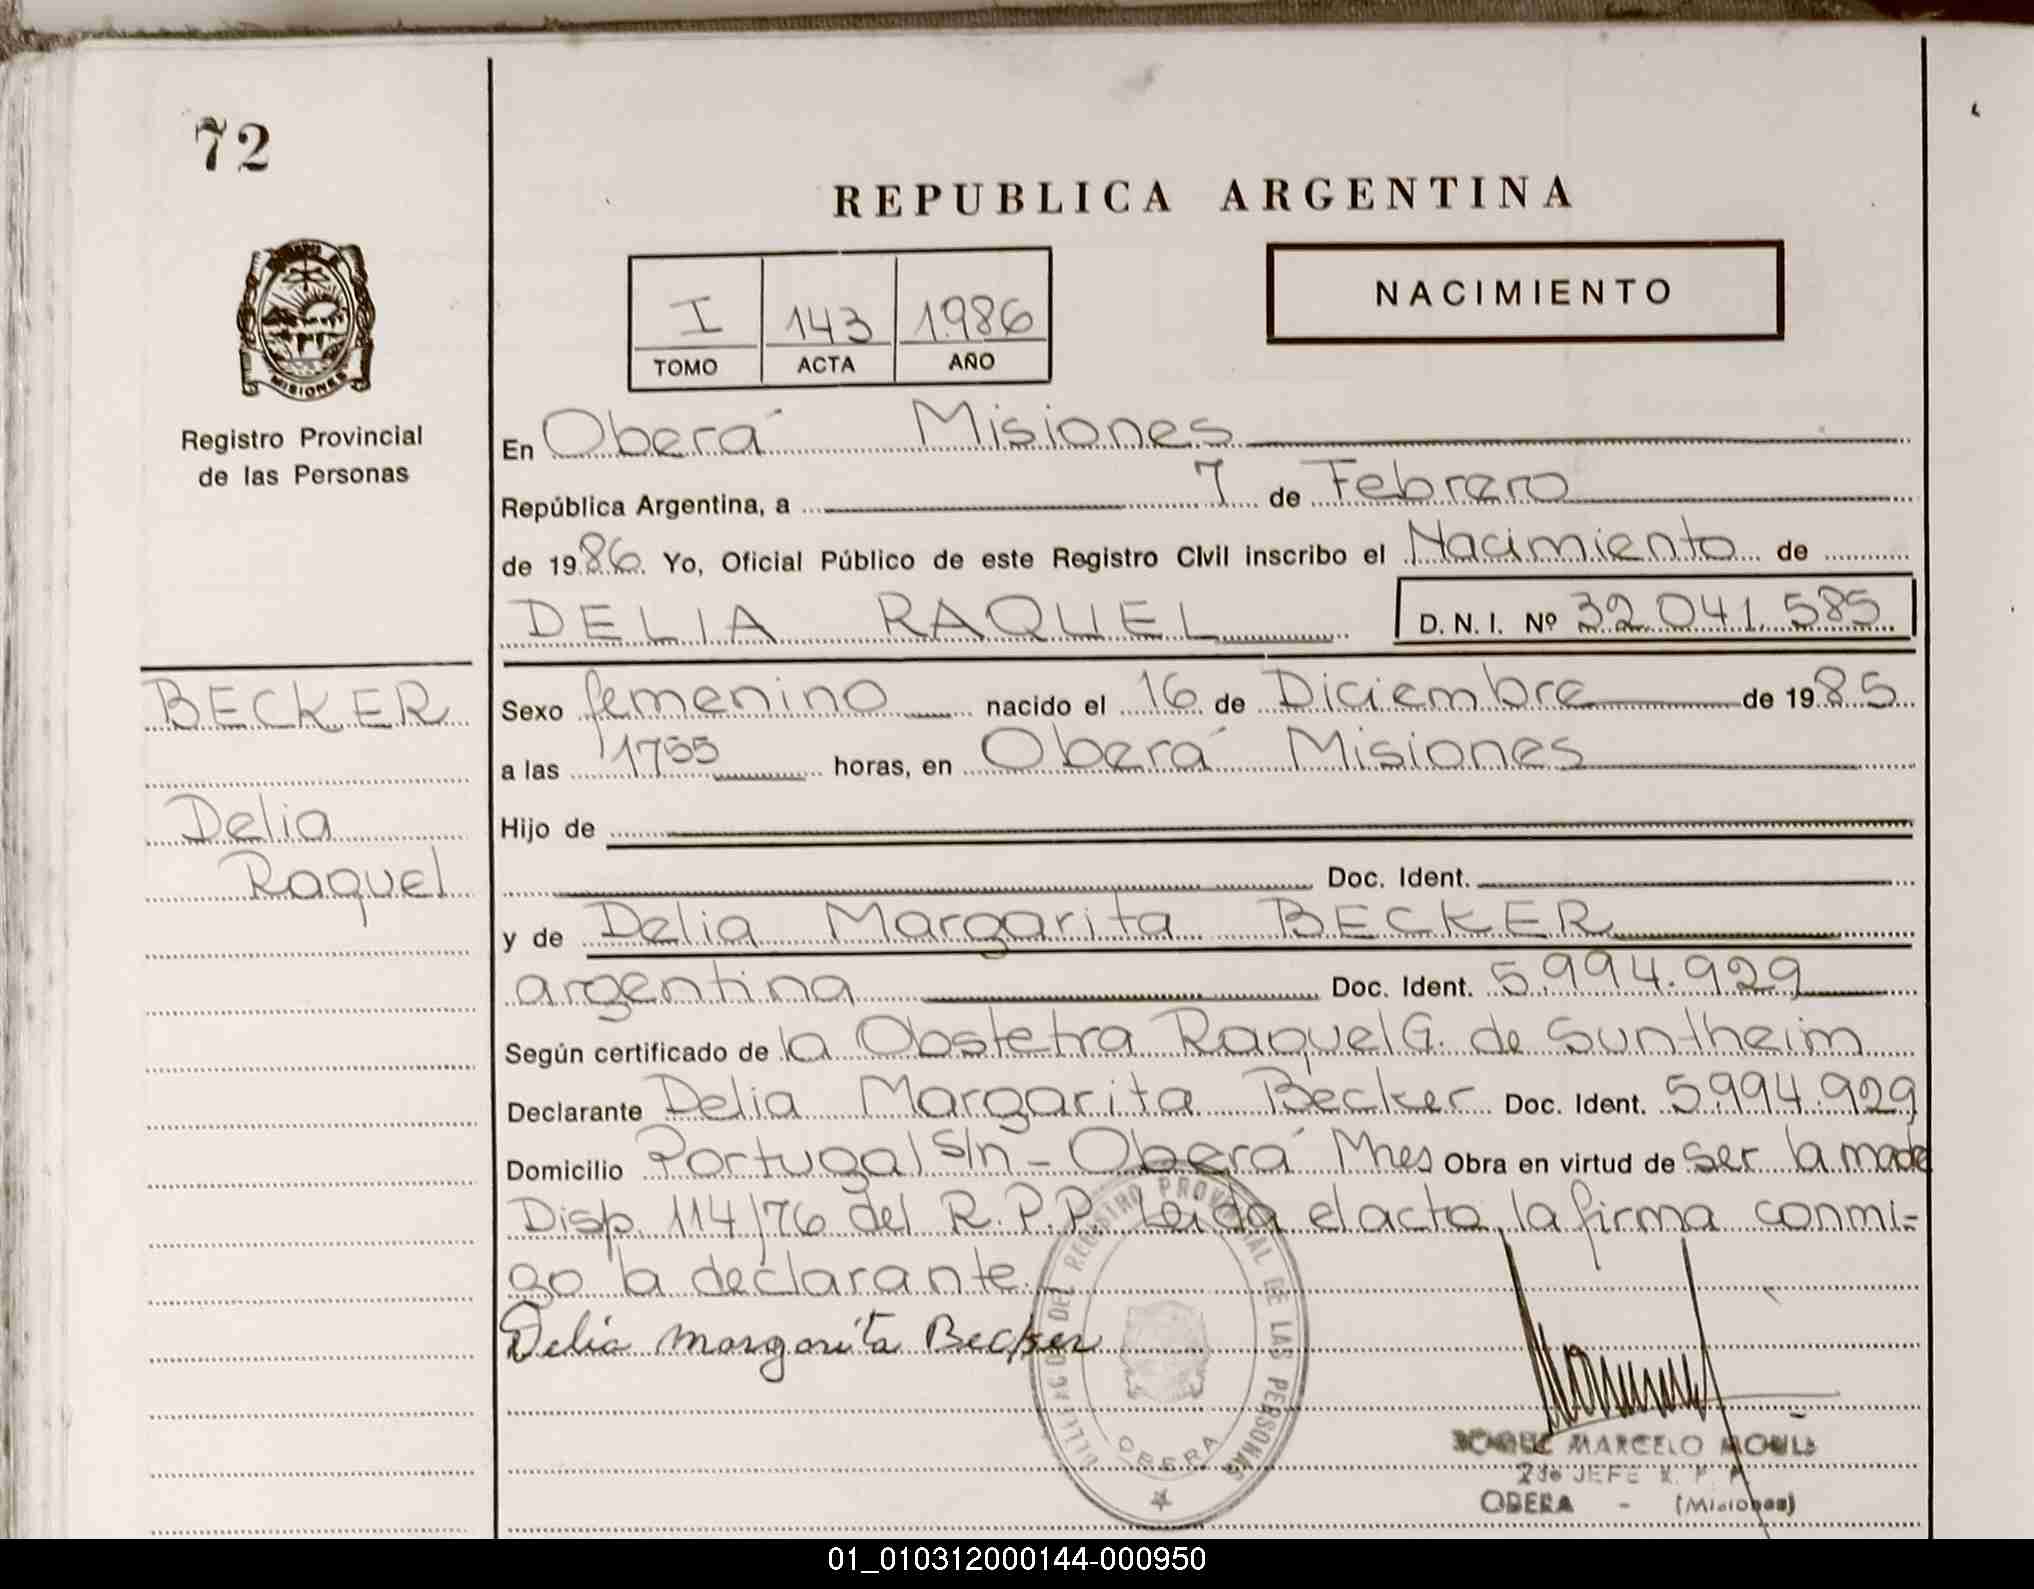 72
REPUBLICA ARGENTINA
NACIMIENTO
I 143 1986
TOMO ACTA AÑO
MISIONES
Registro Provincial
de las Personas
En Oberá Misiones
República Argentina, a 7 de Febrero
de 1986. Yo, Oficial Público de este Registro Civil inscribo el Nacimiento de
DELIA RAQUEL D. N. I. Nº 32.041.585
BECKER
Delia
Raquel
Sexo femenino nacido el 16 de Diciembre de 1985
a las 1755 horas, en Oberá Misiones
Hijo de
Doc. Ident.
y de Delia Margarita BECKER
argentina Doc. Ident. 5.994.929
Según certificado de la Obstetra Raquel G. de Suntheim
Declarante Delia Margarita Becker Doc. Ident. 5.994.929
Domicilio Portugal s/n - Oberá Mnes Obra en virtud de ser la madre
Disp. 114/76 del R.P.P. Leida el acta, la firma conmi-
go la declarante.
Delia Margarita Becker
DEL REGISTRO PROVINCIAL DE LAS PERSONAS
OBERA
MARCELO
2do JEFE R. P. P.
OBERA - (Misiones)
01_010312000144-000950